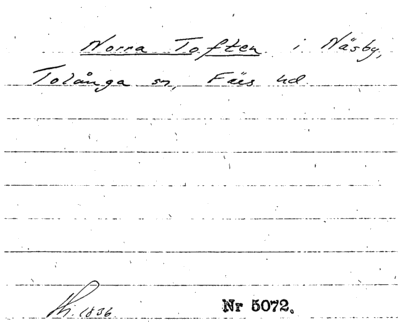 Norra Toften i Näsby,
Tolånga sn, Färs hd.
1836
Nr 5072.